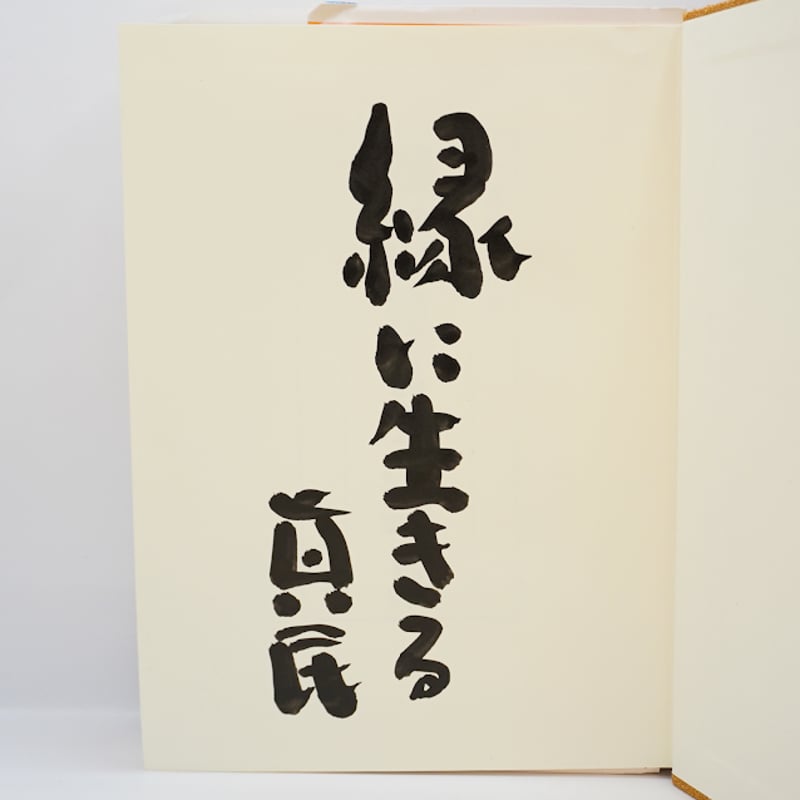 縁に生きる
真民